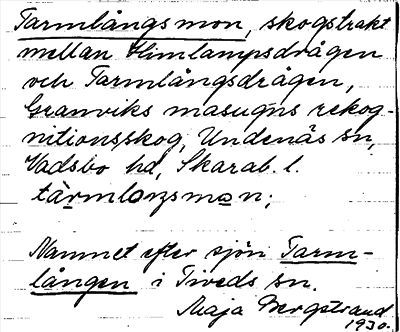 Tarmlångsmon, skogstrakt
mellan Himlampsdrågen
och Tarmlångsdrågen,
Granviks masugns rekog-
nitionsskog, Undenäs sn,
Vadsbo hd, Skarab. l.
tàrmlaŋsmon;
Namnet efter sjön Tarm-
lången i Tiveds sn.
Maja Bergstrand
1930.